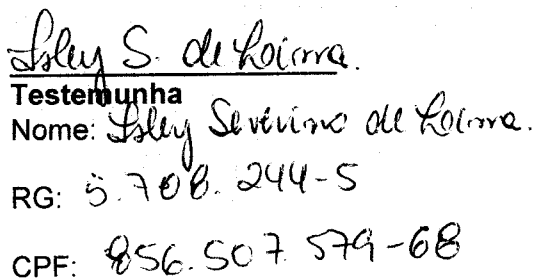 Isley S. de Loiora.
Testemunha
Nome: Isley Severino de Loiora.
RG: 5.708.244-5
CPF: 856.507.579-68